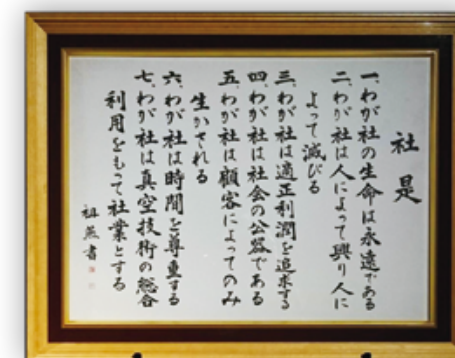 社是
一、わが社の生命は永遠である
二、わが社は人によって興り人に
よって滅びる
三、わが社は適正利潤を追求する
四、わが社は社会の公器である
五、わが社は顧客によってのみ
生かされる
六、わが社は時間を尊重する
七、わが社は真空技術の総合
利用をもって社業とする